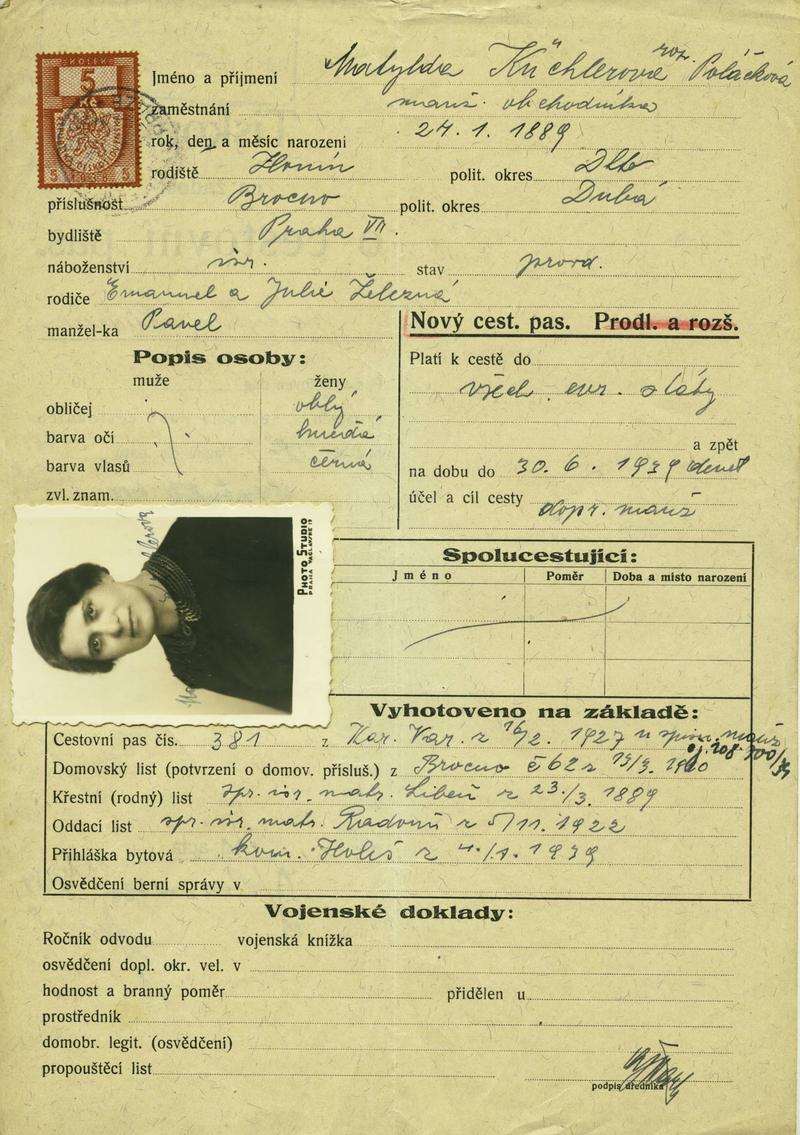 KOLEK
5
Kč
5 5
Jméno a příjmení Matylda Küchlerová roz. Poláčková
zaměstnání manž. obchodníka
rok, den a měsíc narození 24. 1. 1889
rodiště polit. okres
příslušnost Brocno polit. okres Dubá
bydliště Praha VII.
náboženství isr. stav provd.
rodiče Emanuel a Julie Železná
manžel-ka Pavel
Nový cest. pas. Prodl. a rozš.
Popis osoby:
muže ženy
obličej oblý
barva očí hnědá
barva vlasů černá
zvl. znam.
Platí k cestě do
všech evr. státy
a zpět
na dobu do 30. 6. 1939
účel a cíl cesty dopr. manž
PHOTO STUDIO
PRAHA
Spolucestující:
Jméno Poměr Doba a místo narození
Vyhotoveno na základě:
Cestovní pas čís. 381 z Kar. Var. z 16/2. 1927
Domovský list (potvrzení o domov. přísluš.) z Brocno č 62 z
Křestní (rodný) list zpr. isr. matr. Libeň z 23./3. 1889
Oddací list zpr. isr. matr. z 5/11. 1922
Přihláška bytová kom. z 1939
Osvědčení berní správy v
Vojenské doklady:
Ročník odvodu vojenská knížka
osvědčení dopl. okr. vel. v
hodnost a branný poměr přidělen u
prostředník
domobr. legit. (osvědčení)
propouštěcí list
podpis úředníka